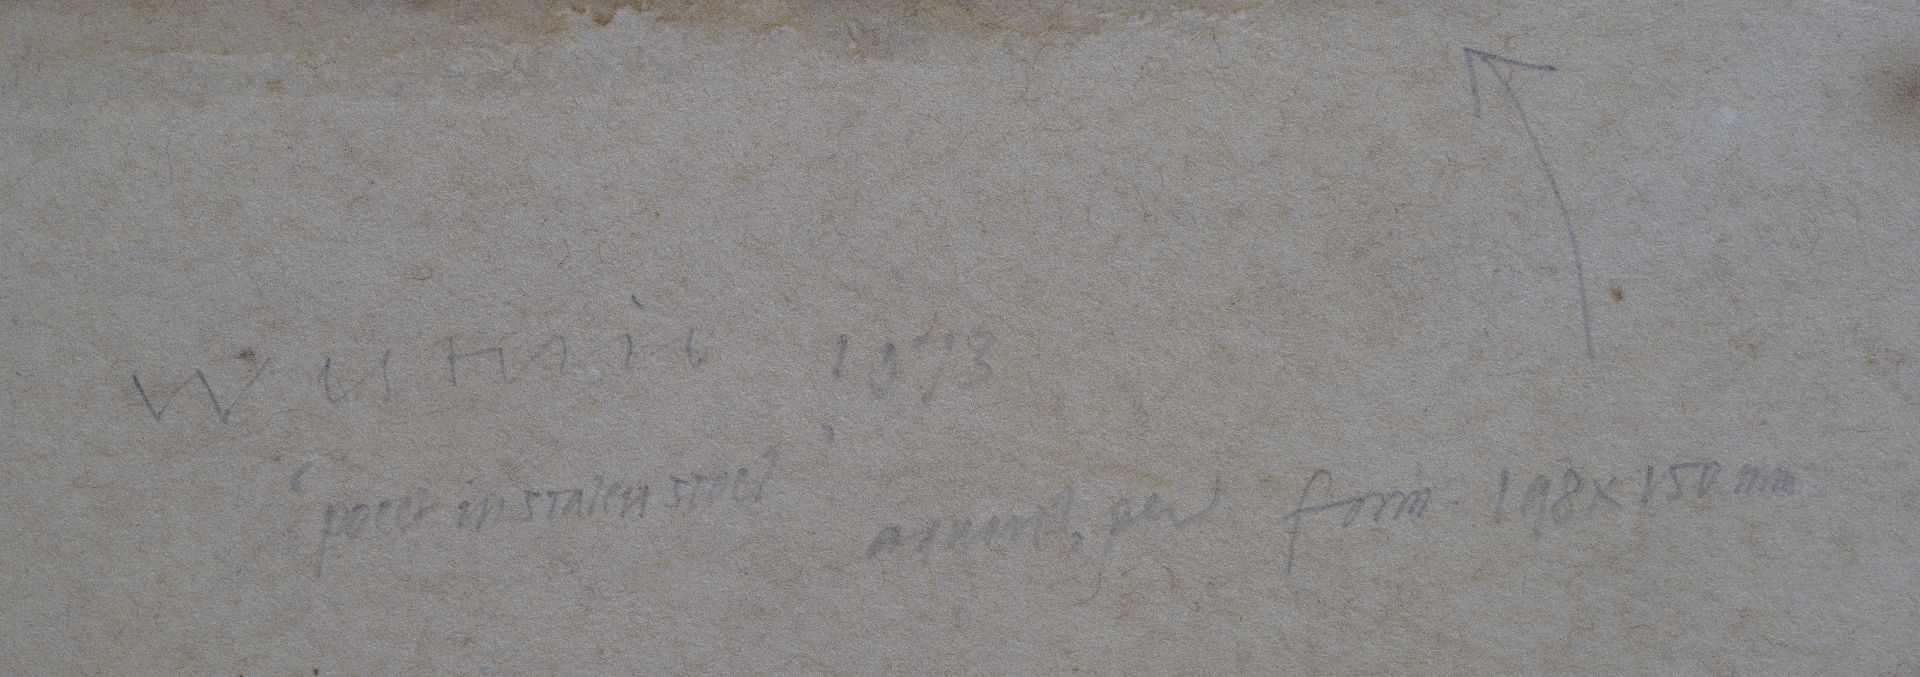 Westerik 1973
"poeet in stalen stoel" aquarel, pen form. 198 x 150 mm